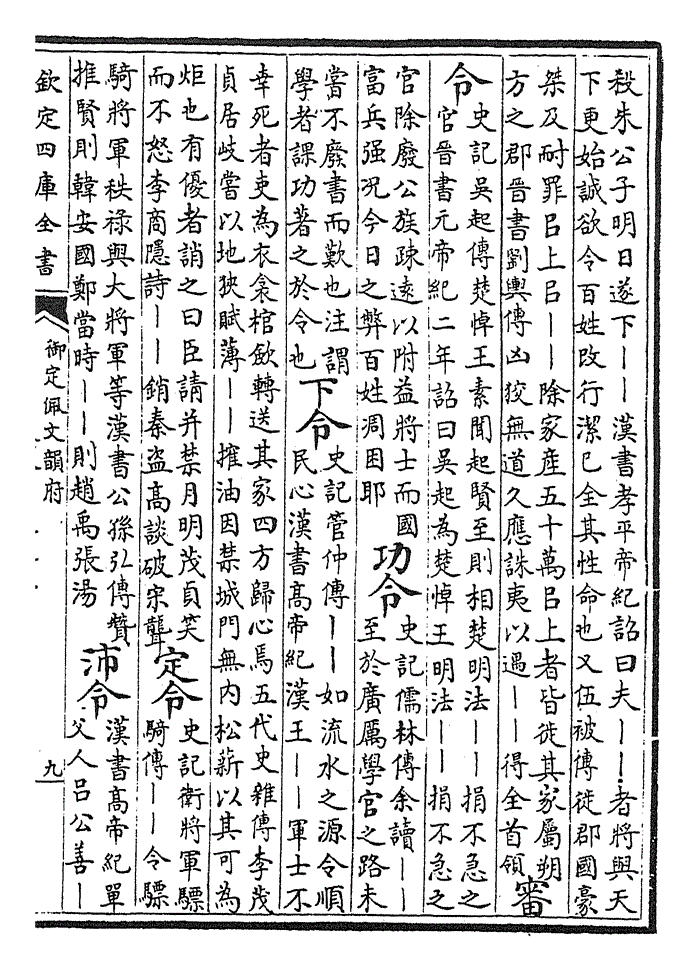 殺朱公子明日遂下——漢書孝平帝紀詔曰夫——者將與天
下更始誠欲令百姓改行潔己全其性命也又伍被傳徙郡國豪
桀及耐罪㠯上㠯——除家産五十萬㠯上者皆徙其家屬朔
方之郡晉書劉輿傳凶狡無道久應誅夷以遇——得全首領
審
令
史記吳起傳楚悼王素聞起賢至則相楚明法——捐不急之
官晉書元帝紀二年詔曰吳起為楚悼王明法——捐不急之
官除廢公族疎遠以附益將士而國
富兵强况今日之弊百姓凋困耶
功令
史記儒林傳余讀——
至於廣厲學官之路未
嘗不廢書而歎也注謂
學者課功著之於令也
下令
史記管仲傳——如流水之源令順
民心漢書高帝紀漢王——軍士不
幸死者吏為衣衾棺歛轉送其家四方歸心焉五代史雜傳李茂
貞居岐嘗以地狹賦薄——搉油因禁城門無内松薪以其可為
炬也有優者誚之曰臣請并禁月明茂貞笑
而不怒李商隱詩——銷秦盗高談破宋聾
定令
史記衛將軍驃
騎傳——令驃
騎將軍秩禄與大將軍等漢書公孫弘傳贊
推賢則韓安國鄭當時——則趙禹張湯
沛令
漢書高帝紀單
父人吕公善—
欽定四庫全書
御定佩文韻府
九